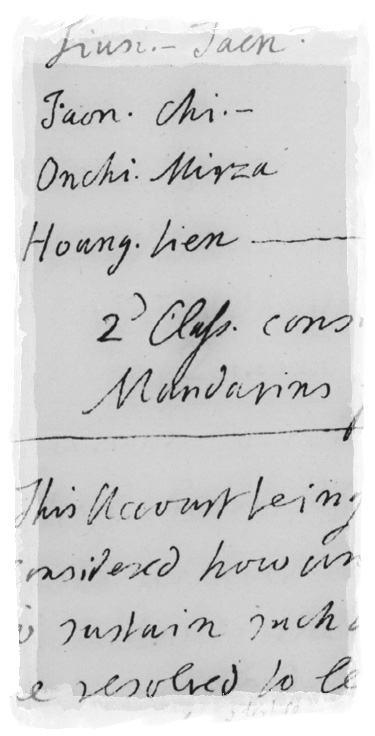 Jiun.- Jaen.
Jaon. Chi.-
Onchi. Mirza
Hoang. Lien —
2d Class. cons
Mandarins
This Account being
onsidered how un
to sustain such a
e resolved to le